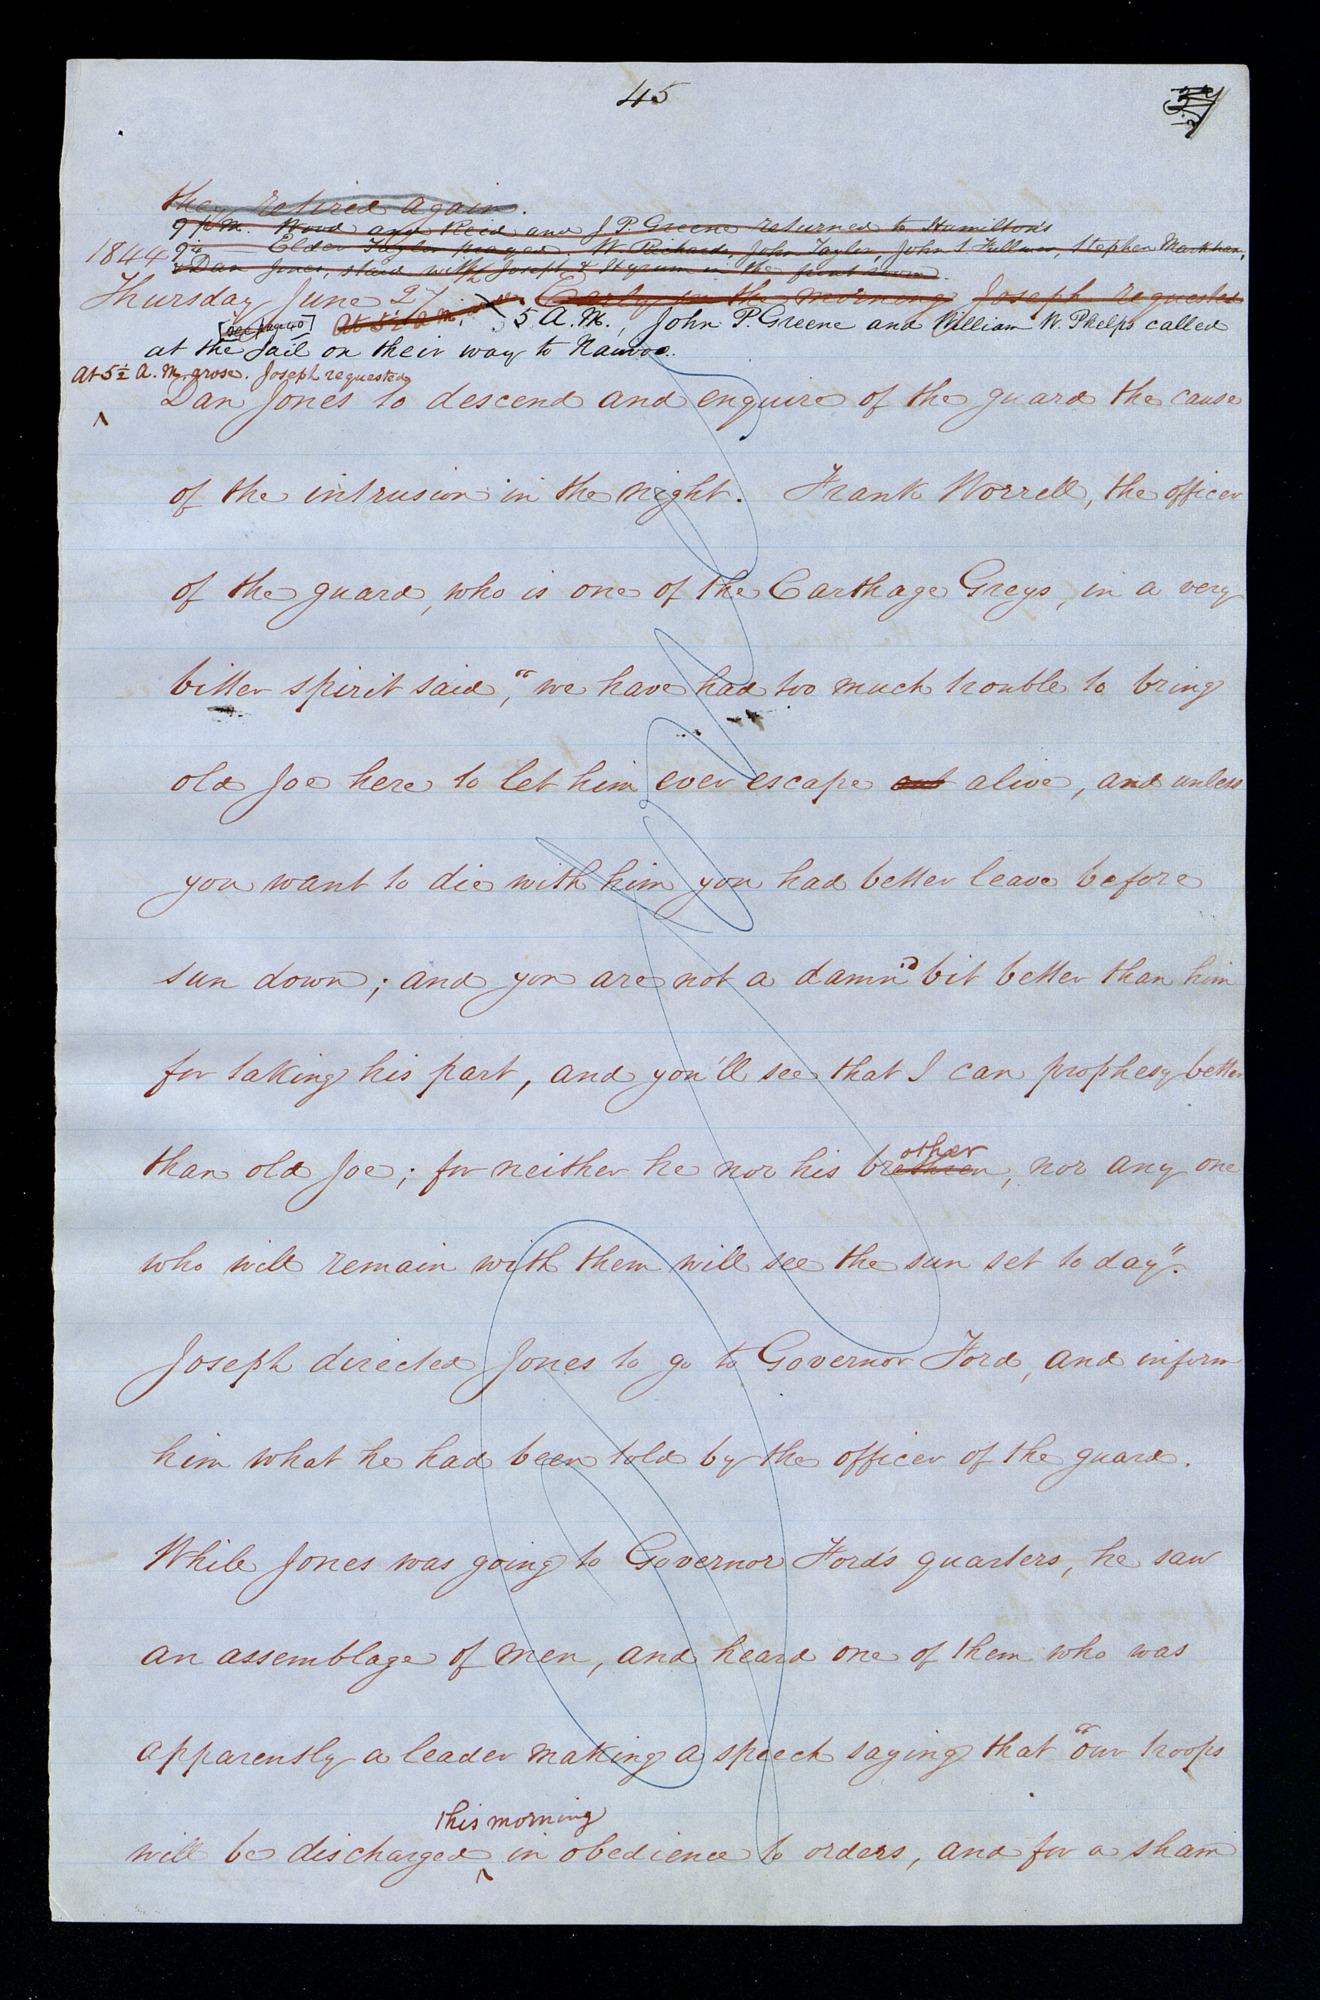 45
they retired again.
9 P.M. Wood and Reid and J P. Greene returned to Hamilton's
1844 9¼ Elder Taylor prayed, W. Richards, John Taylor, John S. Fullmer, Stephen Markham,
& Dan Jones, staid with Joseph & Hyrum in the front room.
Thursday June 27. Early in the morning Joseph requested
[See page 40] At 5½ A.M., 5 A.M., John P. Greene and William W. Phelps called
at the Jail on their way to Nauvoo.
At 5½ A.M. arose. Joseph requested
Dan Jones to descend and enquire of the guard the cause
of the intrusion in the night. Frank Worrell, the officer
of the guard, who is one of the Carthage Greys, in a very
bitter spirit said, "we have had too much trouble to bring
old Joe here to let him ever escape out alive, and unless
you want to die with him you had better leave before
sun down; and you are not a damn'd bit better than him
for taking his part, and you'll see that I can prophesy better
other
than old Joe; for neither he nor his brethren, nor any one
who will remain with them will see the sun set to day".
Joseph directed Jones to go to Governor Ford, and inform
him what he had been told by the officer of the guard.
While Jones was going to Governor Ford's quarters, he saw
an assemblage of men, and heard one of them who was
apparently a leader making a speech saying that "our troops
this morning
will be discharged ^ in obedience to orders, and for a sham